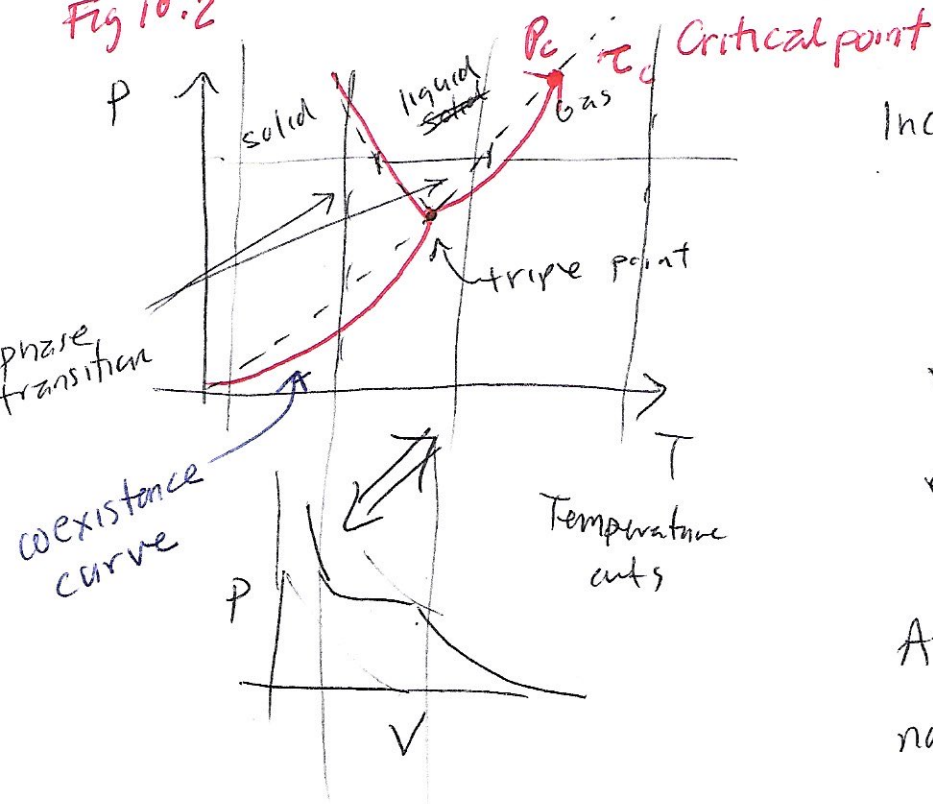 Fig 10.2
Pc τc Critical point
P
solid
liquid
solid
Gas
Inc
triple point
phase
transition
T
coexistence
curve
Temperature
cuts
P
V
A
na